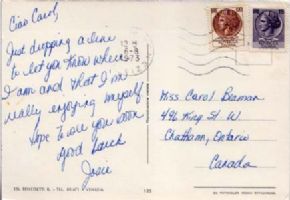 Ciao Carol,
Just dropping a line
to let you know where
I am and that I'm
really enjoying myself
hope to see you soon
good luck
Josie
Miss Carol Beaman
496 King St W.
Chatham, Ontario
Canada